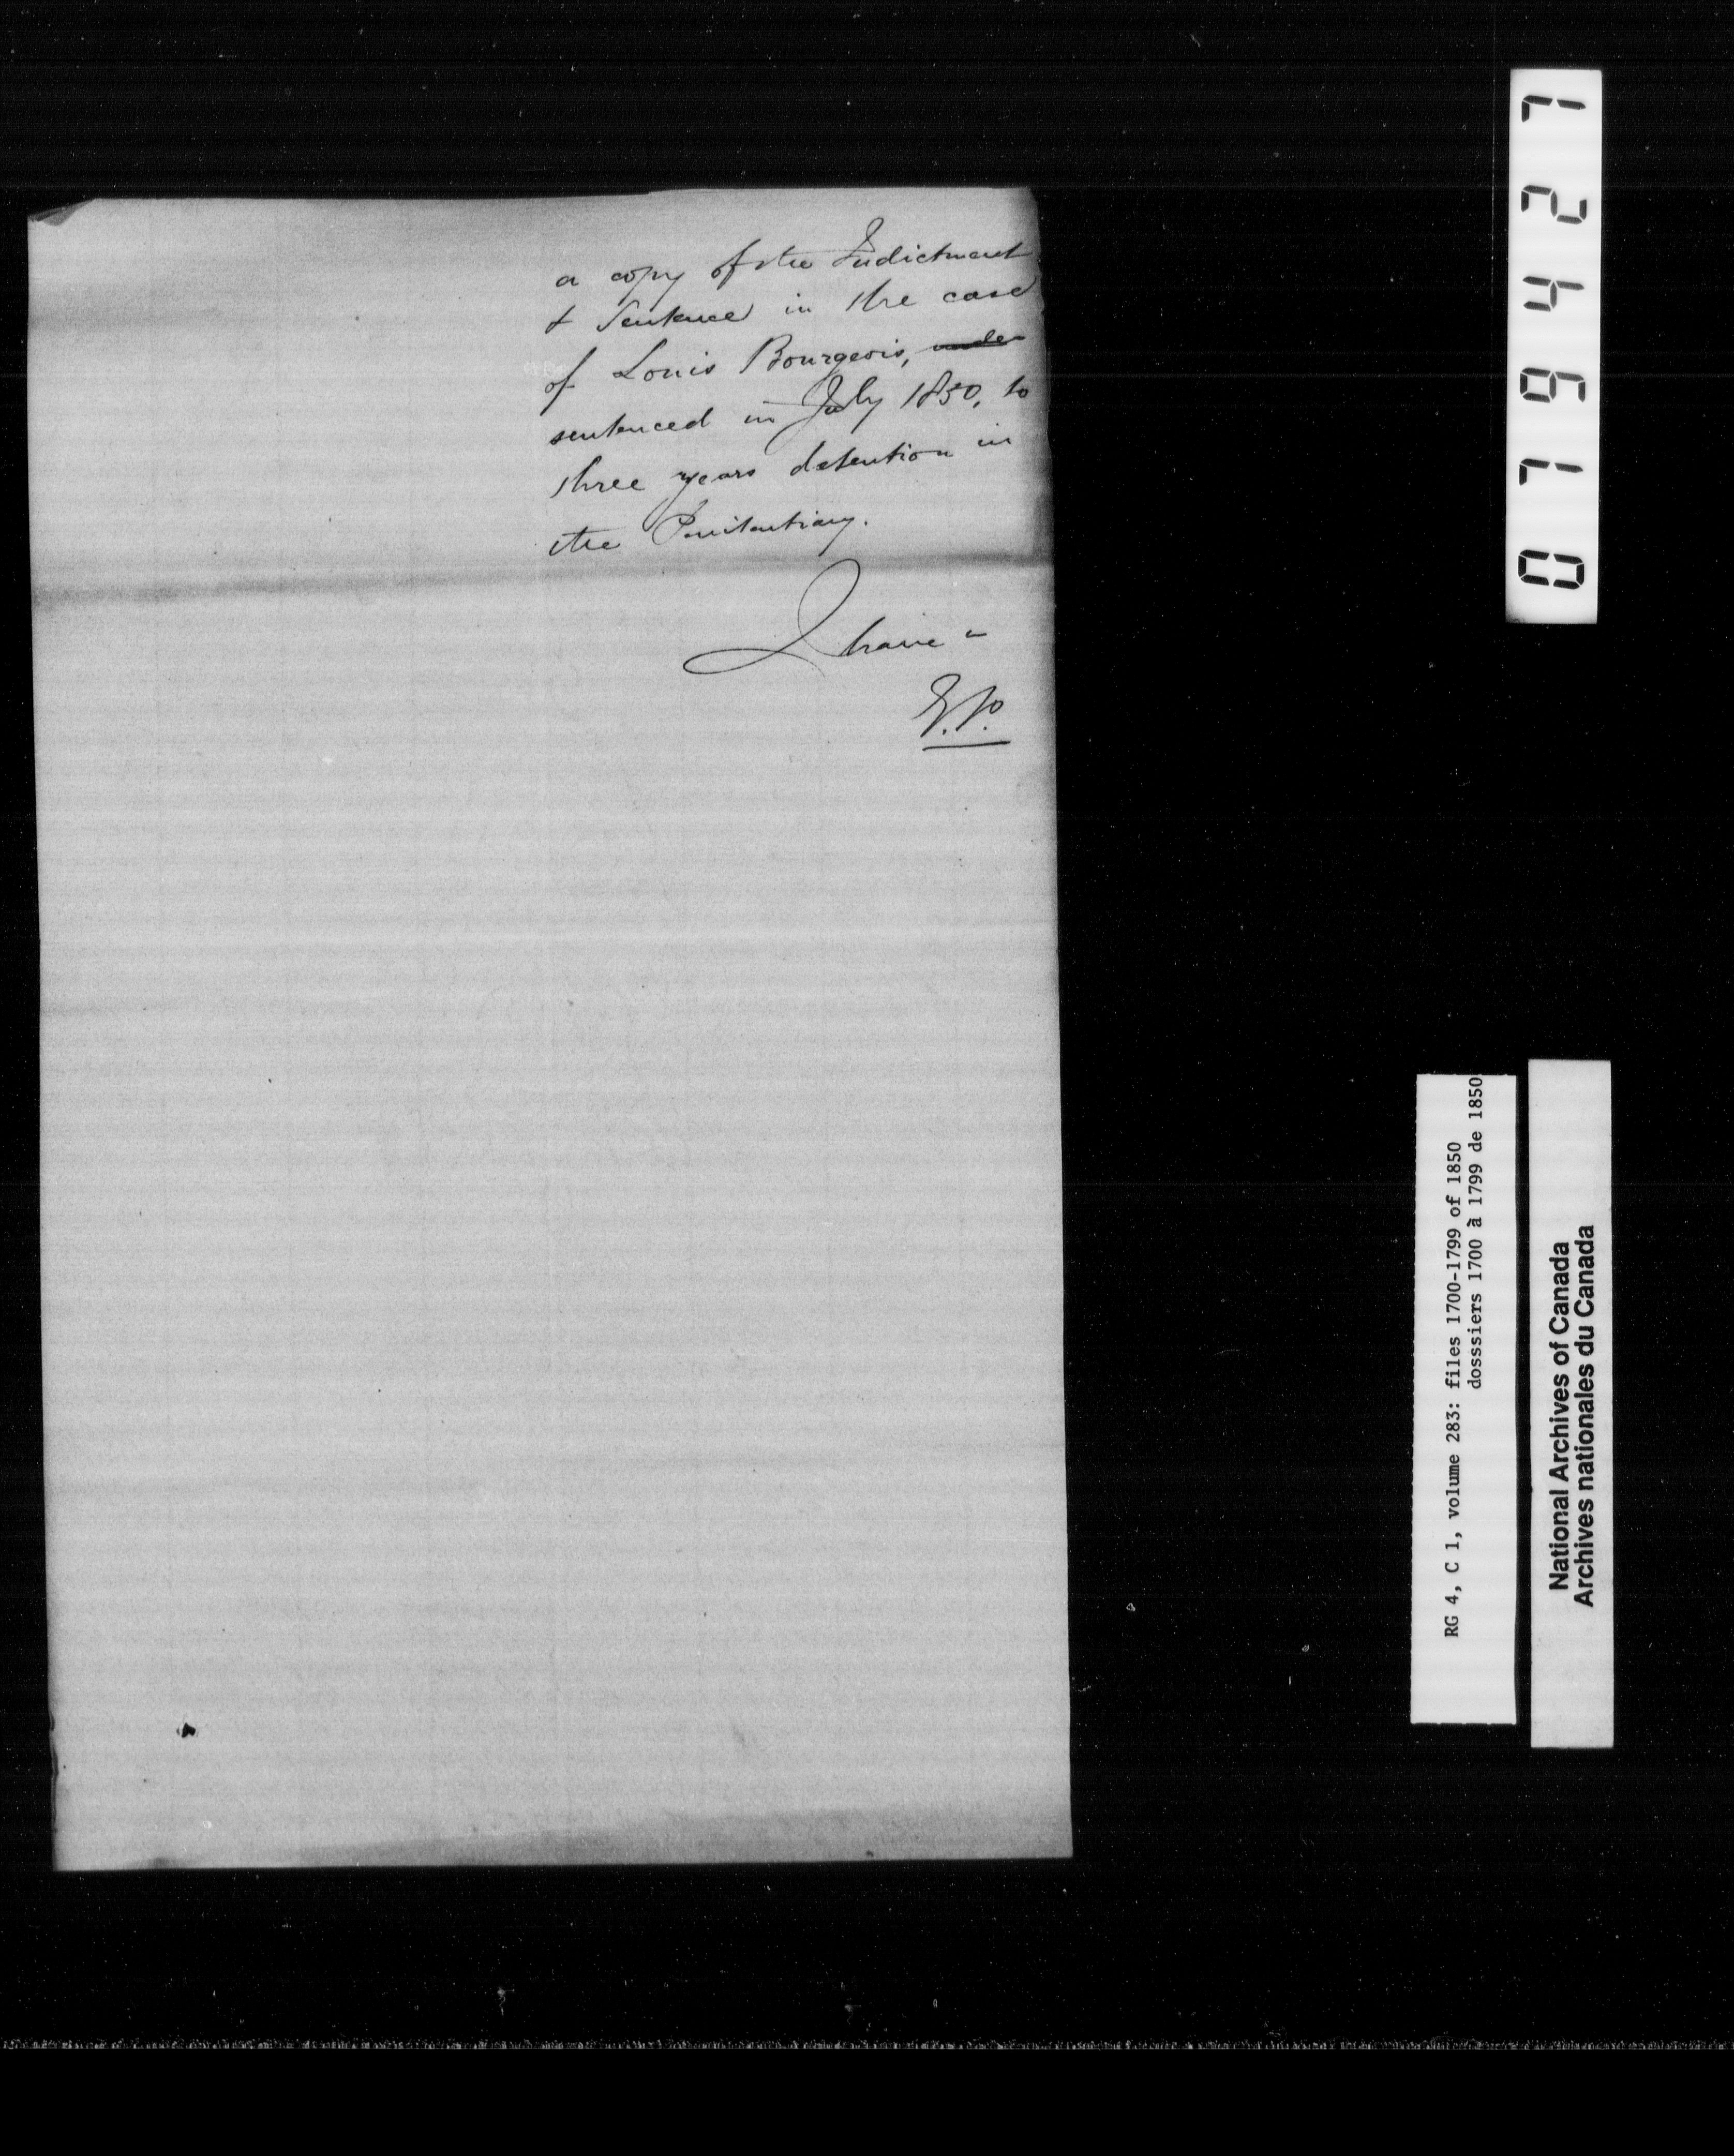 a copy of the Indictment
& Sentence in the case
of Louis Bourgeois, under
sentenced in July 1850, to
three years detention in
the Penitentiary.
I have
079427
RG 4, C 1, volume 283: files 1700-1799 of 1850
dosssiers 1700 à 1799 de 1850
National Archives of Canada
Archives nationales du Canada